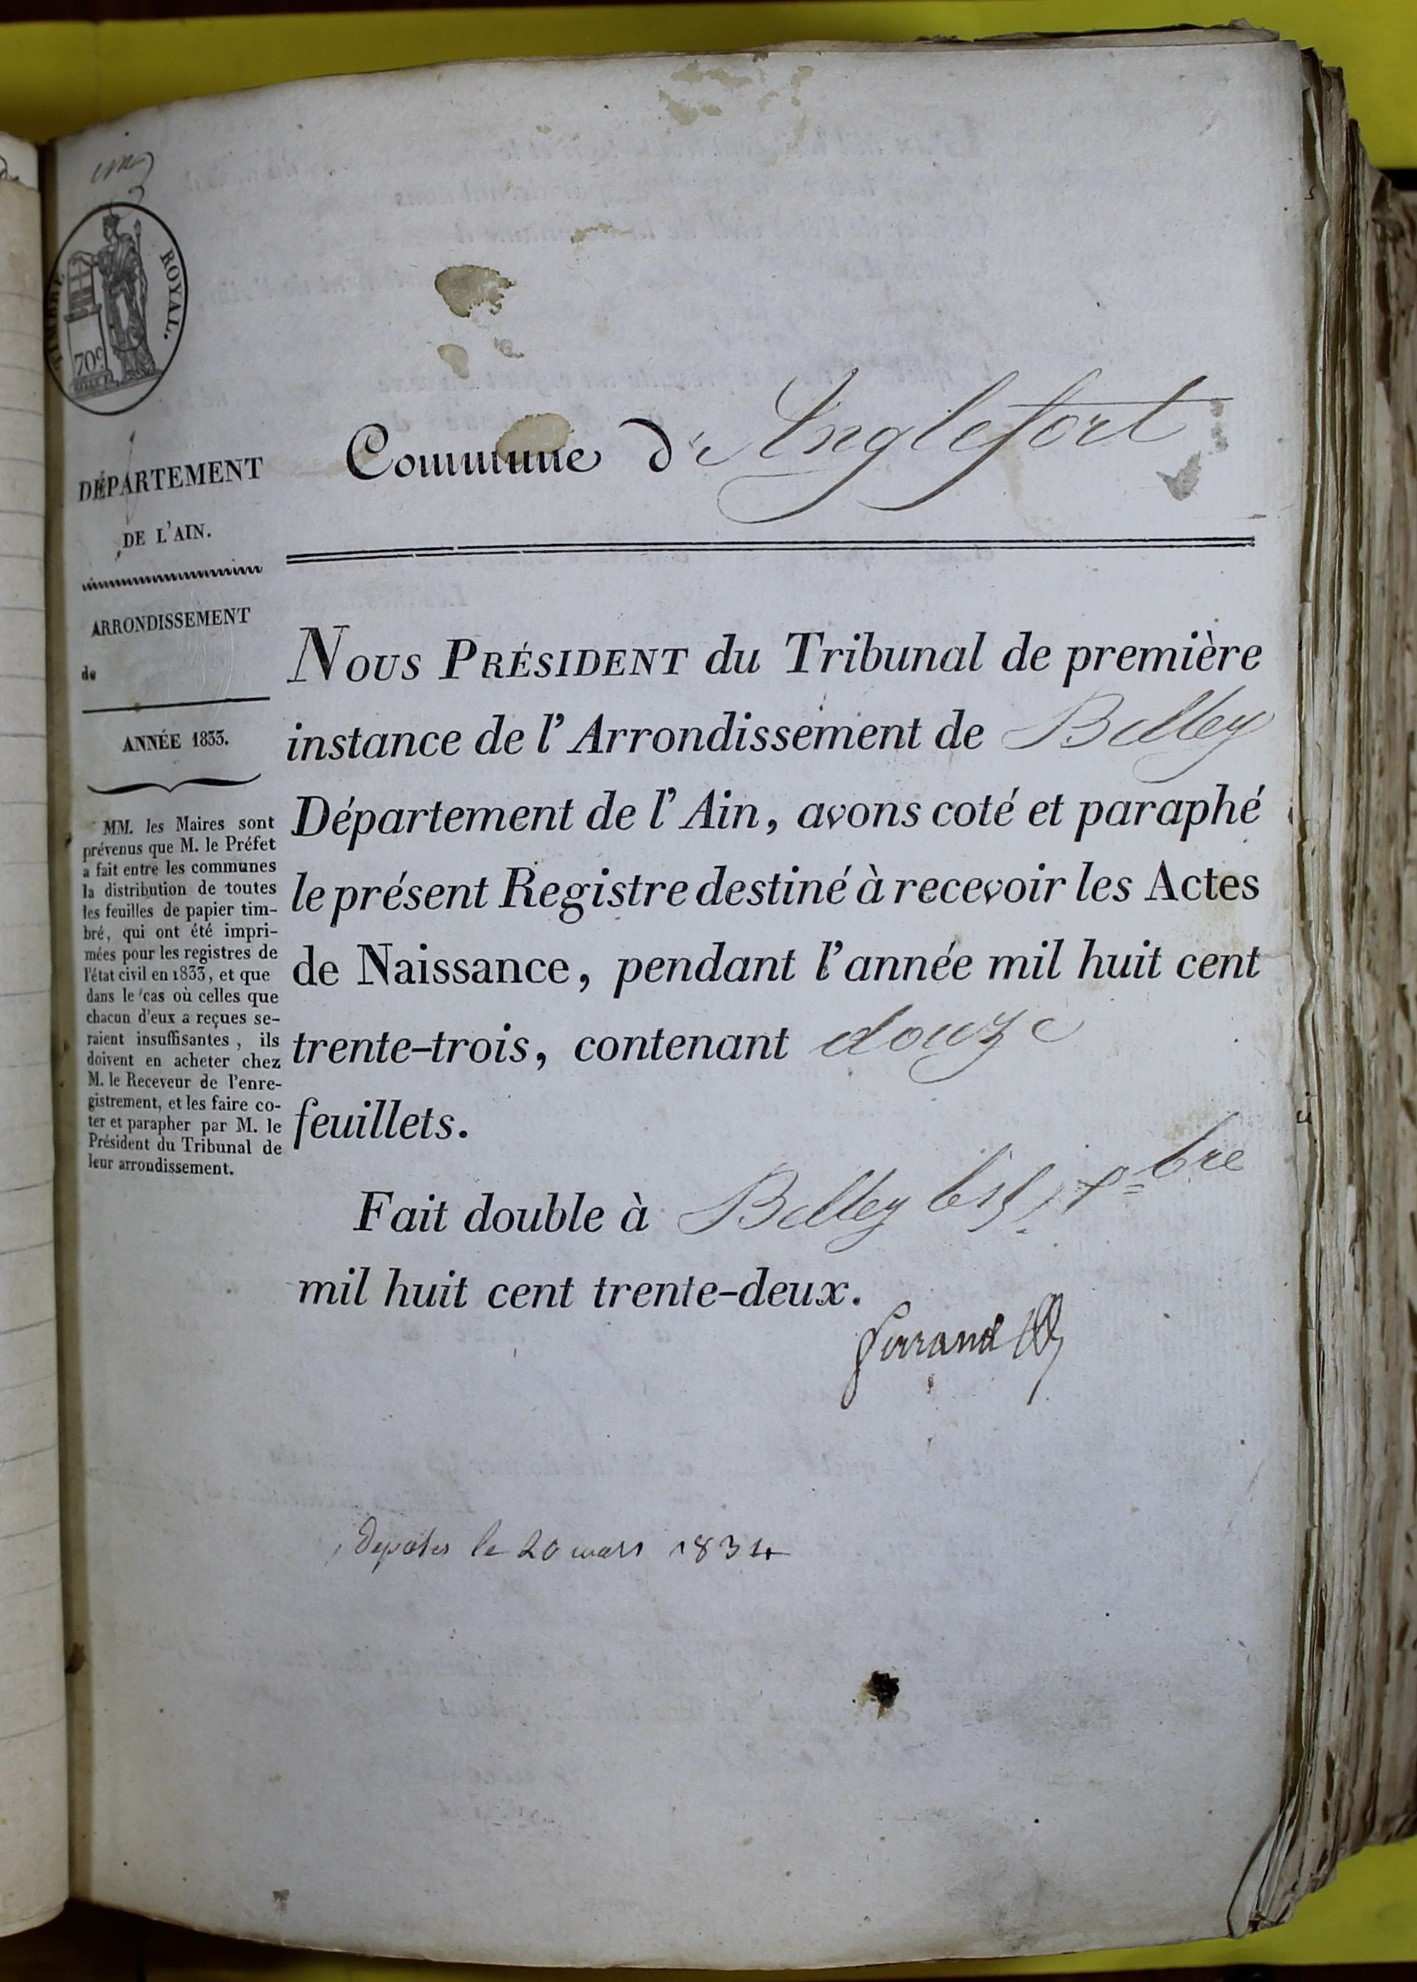 TIMBRE ROYAL.
70c
DÉPARTEMENT
DE L'AIN.
ARRONDISSEMENT
de
ANNÉE 1833.
MM. les Maires sont
prévenus que M. le Préfet
a fait entre les communes
la distribution de toutes
les feuilles de papier tim-
bré, qui ont été impri-
mées pour les registres de
l'état civil en 1833, et que
dans le cas où celles que
chacun d'eux a reçues se-
raient insuffisantes, ils
doivent en acheter chez
M. le Receveur de l'enre-
gistrement, et les faire co-
ter et parapher par M. le
Président du Tribunal de
leur arrondissement.
Commune d'Anglefort
NOUS PRÉSIDENT du Tribunal de première
instance de l'Arrondissement de Belley
Département de l'Ain, avons coté et paraphé
le présent Registre destiné à recevoir les Actes
de Naissance, pendant l'année mil huit cent
trente-trois, contenant douze
feuillets.
Fait double à Belley le bre
mil huit cent trente-deux.
déposés le 20 mars 1834